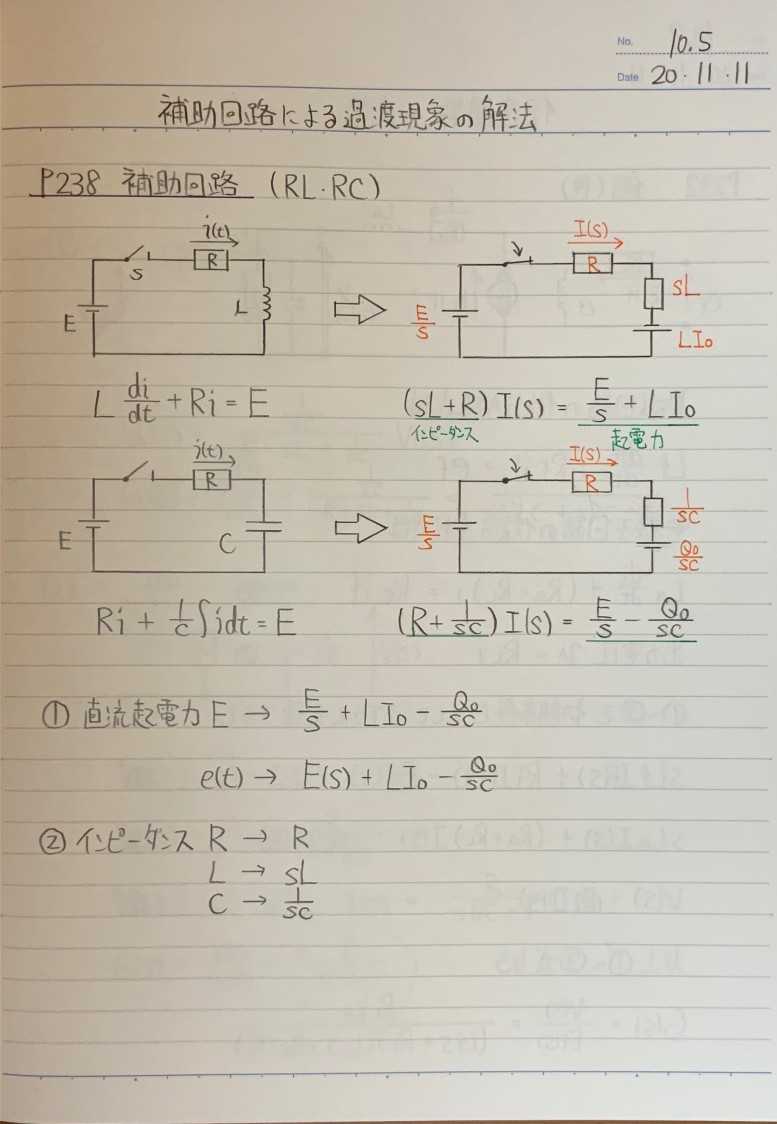 No. 10.5
Date 20・11・11
補助回路による過渡現象の解法
P238 補助回路 (RL・RC)
i(t)
R
S
L
E
I(s)
R
sL
E/S
LI₀
L di/dt + Ri = E
(sL+R) I(s) = E/S + LI₀
インピーダンス
起電力
i(t)
R
E
C
I(s)
R
1/SC
E/S
Q₀/SC
Ri + 1/C ∫idt = E
(R + 1/SC) I(s) = E/S − Q₀/SC
① 直流起電力 E → E/S + LI₀ − Q₀/SC
e(t) → E(s) + LI₀ − Q₀/SC
② インピーダンス R → R
L → sL
C → 1/SC